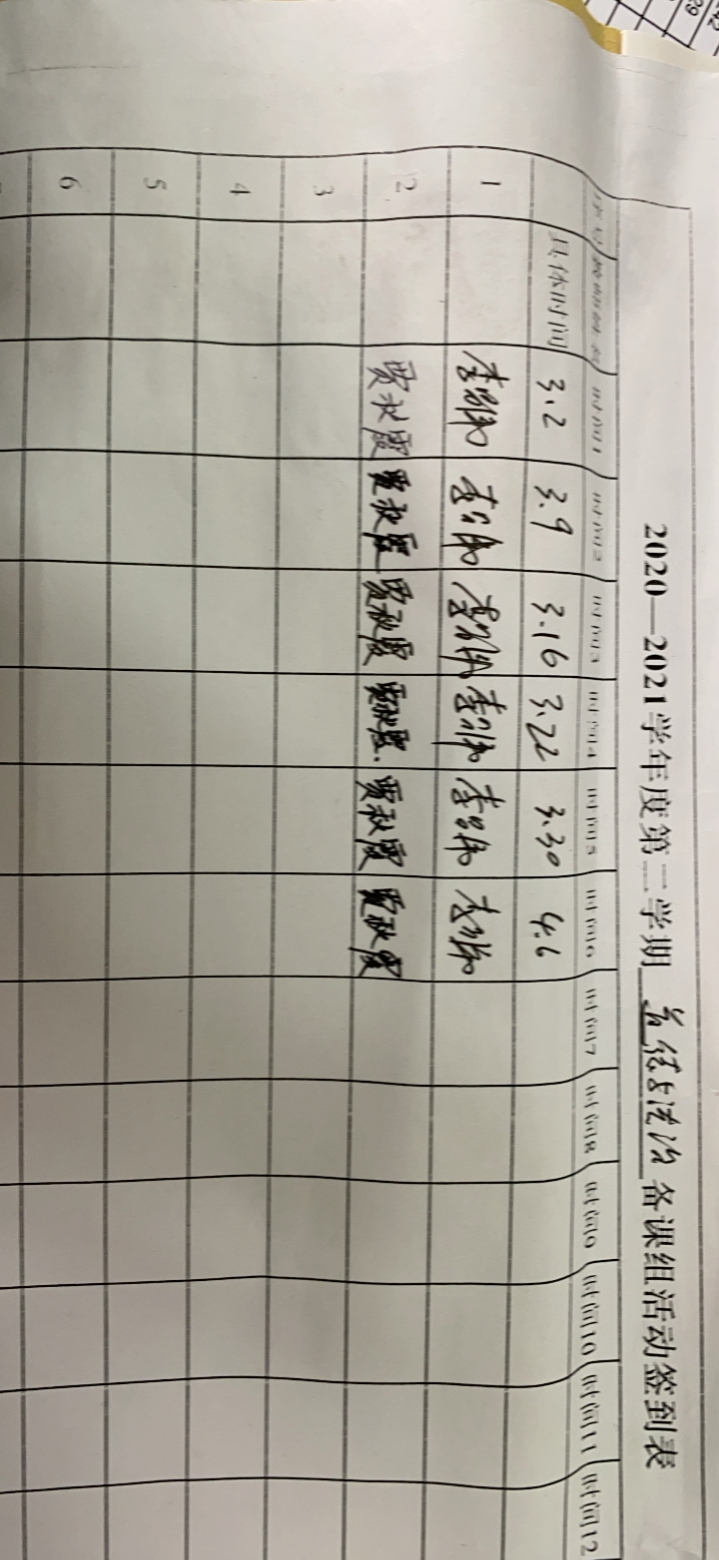 2020—2021学年度第二学期 道德与法治 备课组活动签到表
时间1 时间2 时间3 时间4 时间5 时间6 时间7 时间8 时间9 时间10 时间11 时间12
具体时间 3.2 3.9 3.16 3.22 3.30 4.6
1
2 贾秋霞 贾秋霞 贾秋霞 贾秋霞 贾秋霞 贾秋霞
3
4
5
6